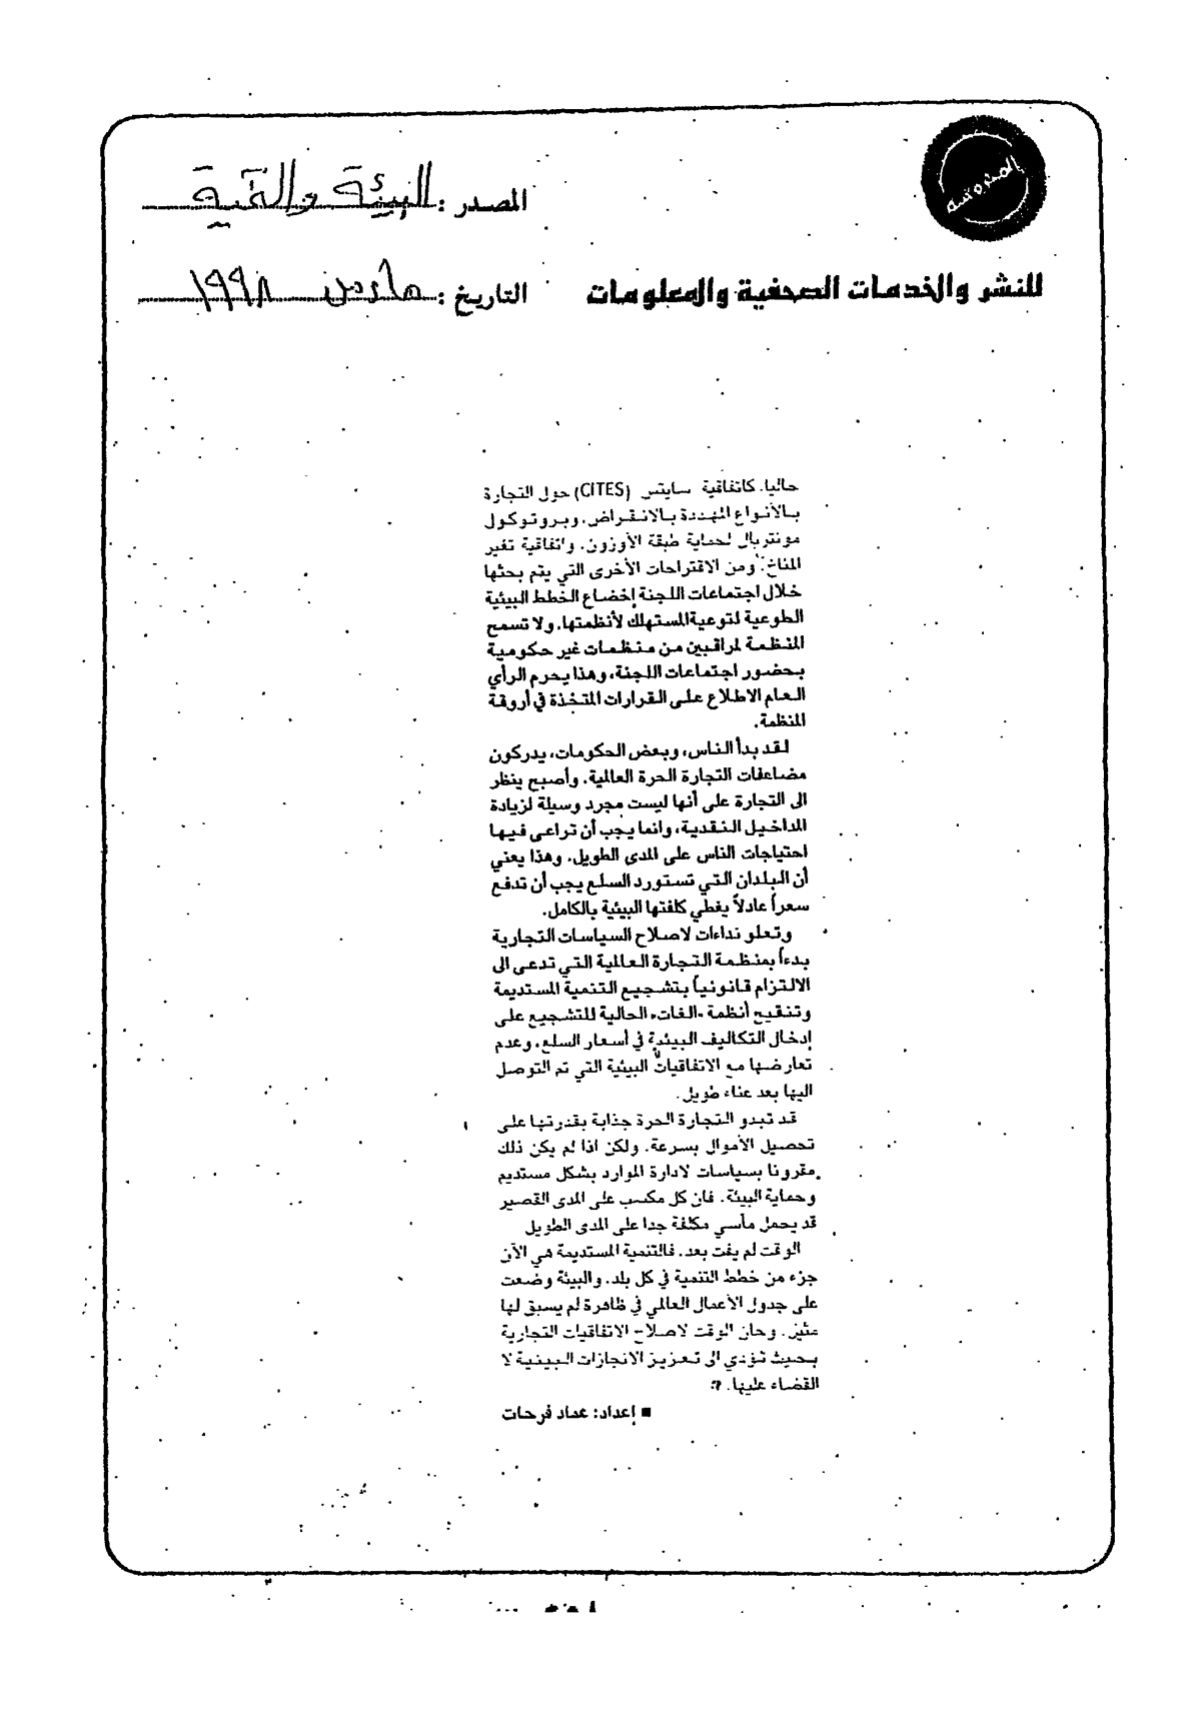 المحروسة
المصدر: البيئة والتنمية
للنشر والخدمات الصحفية والمعلومات
التاريخ: مارس ١٩٩٨
حاليا. كاتفاقية سايتس (CITES) حول التجارة
بالأنواع المهددة بالانقراض، وبروتوكول
مونتريال لحماية طبقة الأوزون، واتفاقية تغير
المناخ. ومن الاقتراحات الأخرى التي يتم بحثها
خلال اجتماعات اللجنة إخضاع الخطط البيئية
الطوعية لتوعية المستهلك لأنظمتها. ولا تسمح
المنظمة لمراقبين من منظمات غير حكومية
بحضور اجتماعات اللجنة، وهذا يحرم الرأي
العام الاطلاع على القرارات المتخذة في أروقة
المنظمة.
لقد بدأ الناس، وبعض الحكومات، يدركون
مضاعفات التجارة الحرة العالمية. وأصبح ينظر
الى التجارة على أنها ليست مجرد وسيلة لزيادة
المداخيل النقدية، وانما يجب أن تراعى فيها
احتياجات الناس على المدى الطويل. وهذا يعني
أن البلدان التي تستورد السلع يجب أن تدفع
سعراً عادلاً يغطي كلفتها البيئية بالكامل.
وتعلو نداءات لاصلاح السياسات التجارية
بدءاً بمنظمة التجارة العالمية التي تدعى الى
الالتزام قانونياً بتشجيع التنمية المستديمة
وتنقيح أنظمة «الغات» الحالية للتشجيع على
إدخال التكاليف البيئية في أسعار السلع، وعدم
تعارضها مع الاتفاقيات البيئية التي تم التوصل
اليها بعد عناء طويل.
قد تبدو التجارة الحرة جذابة بقدرتها على
تحصيل الأموال بسرعة. ولكن اذا لم يكن ذلك
مقرونا بسياسات لادارة الموارد بشكل مستديم
وحماية البيئة، فان كل مكسب على المدى القصير
قد يحمل مآسي مكلفة جدا على المدى الطويل
الوقت لم يفت بعد. فالتنمية المستديمة هي الآن
جزء من خطط التنمية في كل بلد. والبيئة وضعت
على جدول الأعمال العالمي في ظاهرة لم يسبق لها
مثيل. وحان الوقت لاصلاح الاتفاقيات التجارية
بحيث تؤدي الى تعزيز الانجازات البيئية لا
القضاء عليها.
■ إعداد: عماد فرحات